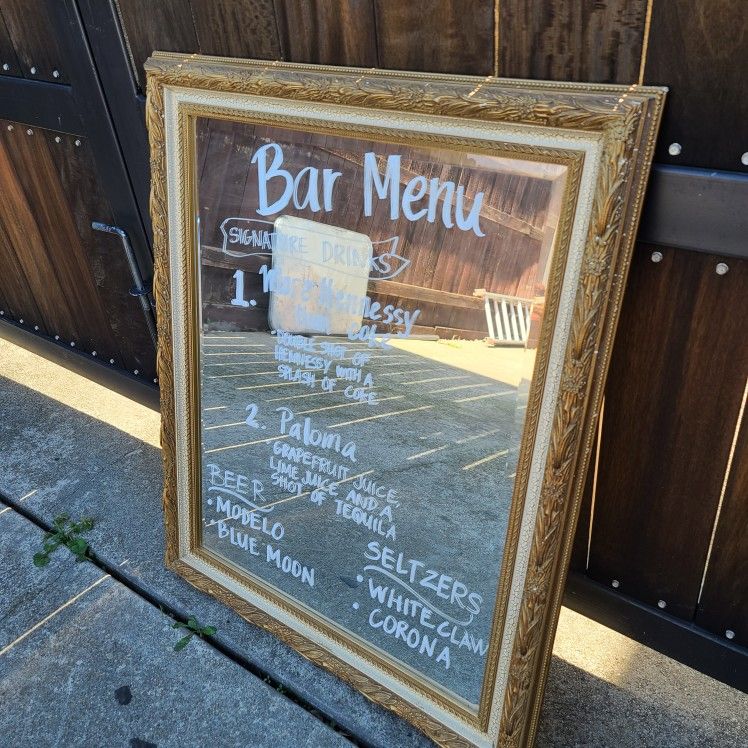 Bar Menu
SIGNATURE DRINKS
1. More Hennessy
than Coke
• DOUBLE SHOT OF
HENNESSY WITH A
SPLASH OF COKE
2. Paloma
• GRAPEFRUIT JUICE,
LIME JUICE, AND A
SHOT OF TEQUILA
BEER
• MODELO
• BLUE MOON
SELTZERS
• WHITECLAW
• CORONA